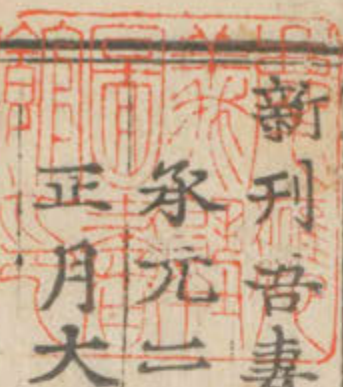 新刊吾妻
承元二
正月大